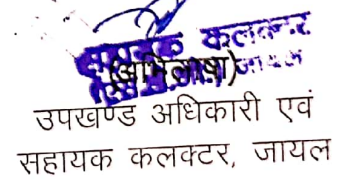 सहायक कलक्टर
(अभिलाषा) जायल
उपखण्ड अधिकारी एवं
सहायक कलक्टर, जायल